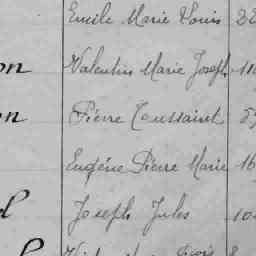 Emile Marie Louis
on Valentin Marie Joseph 11
on Pierre Toussaint
Eugéne Pierre Marie 16
Joseph Jules 10